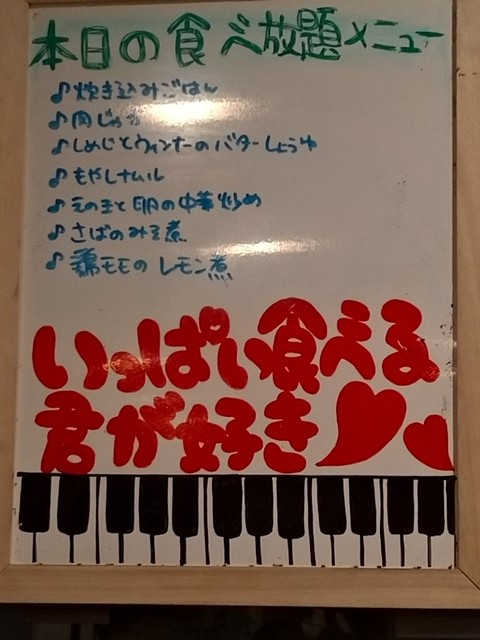 本日の食べ放題メニュー
♪炊き込みごはん
♪肉じゃが
♪しめじとウィンナーのバターしょうゆ
♪もやしナムル
♪えのきと卵の中華炒め
♪さばのみそ煮
♪鶏モモのレモン煮
いっぱい食べる
君が好き